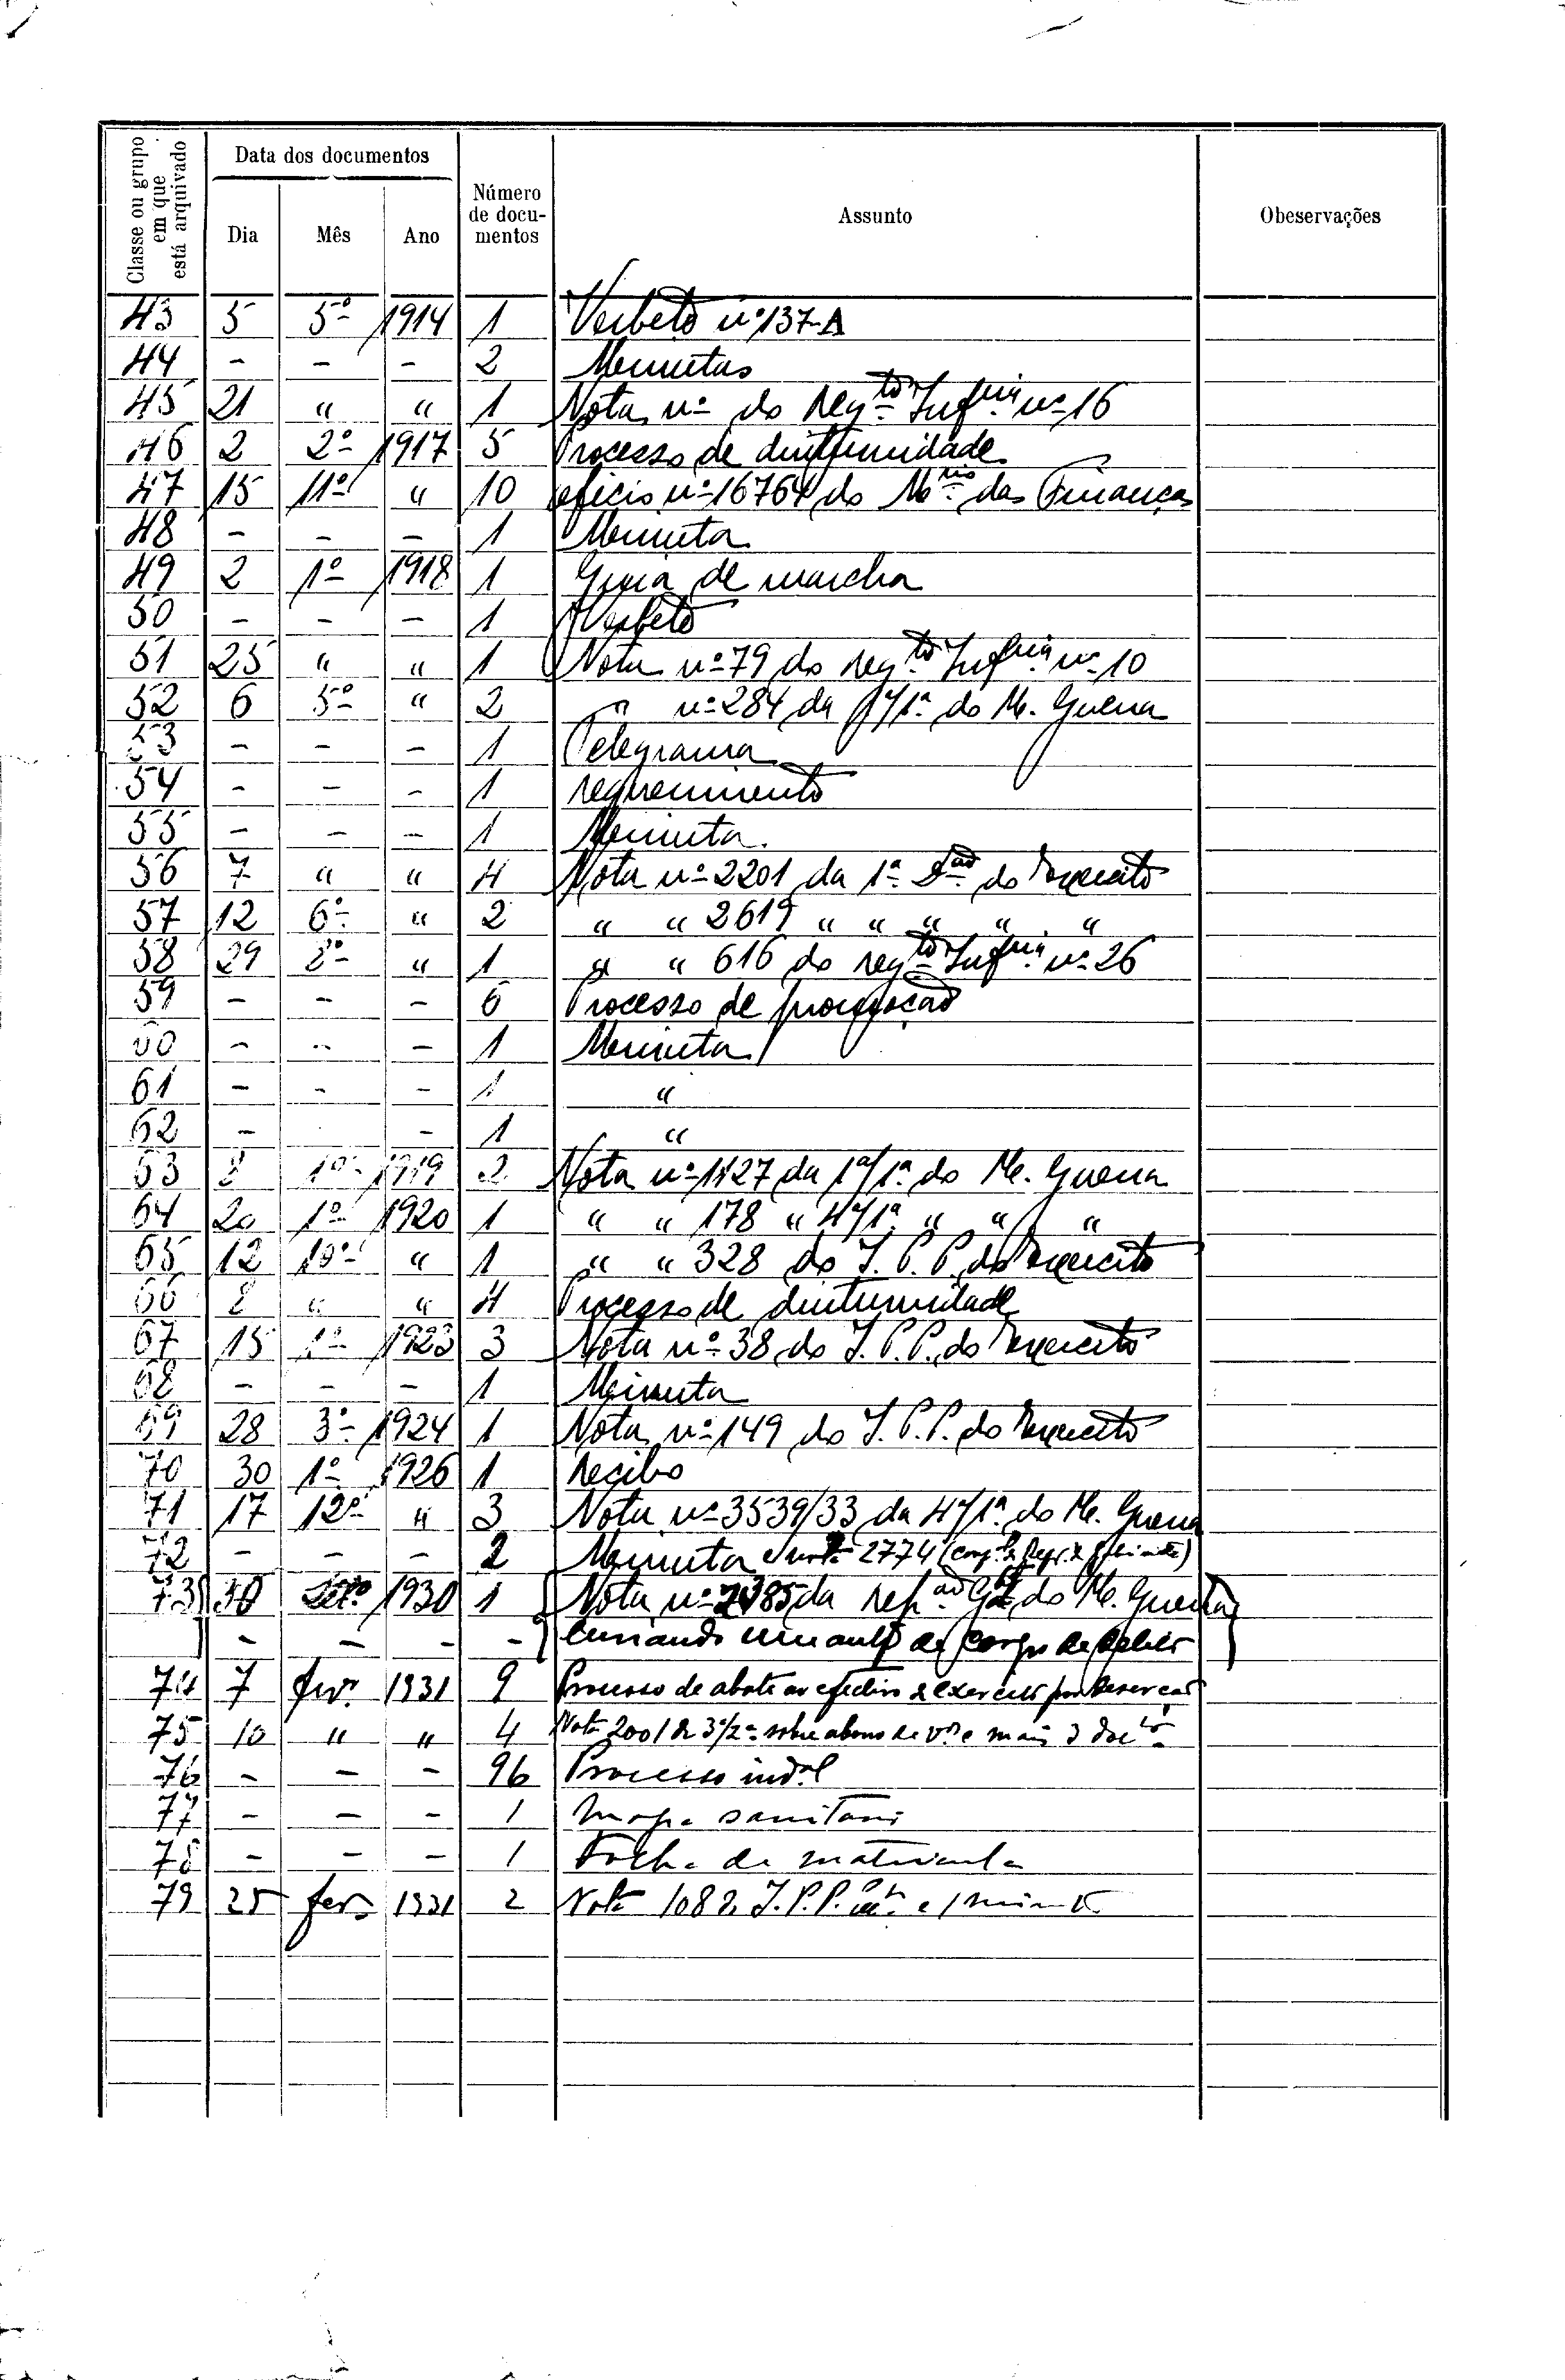 Classe ou grupo em que está arquivado
Data dos documentos
Dia Mês Ano
Número de docu-mentos
Assunto
Obeservações
43 5 5º 1914 1 Verbete nº 137-A
44 - - - 2 Minutas
45 21 " " 1 Nota nº do Regto Infria nº 16
46 2 2º 1917 5 Processo de diuturnidade
47 15 11º " 10 oficio nº 16764 do Mº das Finanças
48 - - - 1 Minuta
49 2 1º 1918 1 Guia de marcha
50 - - - 1 Verbete
51 25 " " 1 Nota nº 79 do regto Infria nº 10
52 6 5º " 2 " nº 284 da /1ª do M. Guerra
53 - - - 1 Telegrama
54 - - - 1 requerimento
55 - - - 1 Minuta
56 7 " " 4 Nota nº 2201 da 1ª Dão do Exercito
57 12 6º " 2 " " 2619 " " " " "
58 29 8º " 1 " " 616 do regto Infria nº 26
59 - - - 6 Processo de promoção
60 - - - 1 Minuta
61 - - - 1 "
62 - - 1 "
63 8 1º 1919 2 Nota nº 1127 da 1ª/1ª do M. Guerra
64 20 1º 1920 1 " " 178 " 4ª/1ª " " "
65 12 10º " 1 " " 328 do I. P. P. do Exercito
66 8 " " 4 Processo de diuturnidade
67 15 1º 1923 3 Nota nº 38 do I. P. P. do Exercito
68 - - - 1 Minuta
69 28 3º 1924 1 Nota nº 149 do I. P. P. do Exercito
70 30 1º 1926 1 Recibo
71 17 12º " 3 Nota nº 3539/33 da 4ª/1ª do M. Guerra
72 - - - 2 Minuta e nota 2774
73 30 Setº 1930 1 Nota nº da repão Gal do M. Guerra
- - - - enviando um auto de corpo de delito
74 7 fevº 1931 9 Processo de abate ao efectivo do exercito por deserção
75 10 " " 4 Nota 2001 da 3ª/2ª sobre abono de e mais 3 doctos
76 - - - 96 Processo indal
77 - - - 1 Mapa sanitario
78 - - - 1 Folha de matricula
79 25 fevº 1931 2 Nota 108 do I. P. P. e 1 minuta